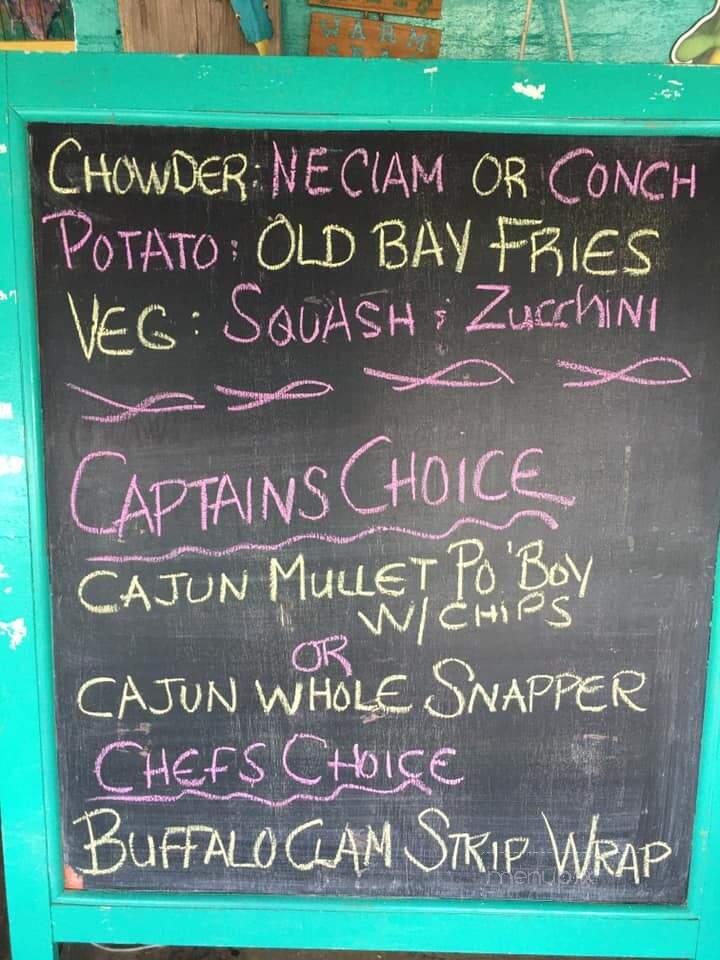 WARM
CHOWDER: NE CLAM OR CONCH
POTATO: OLD BAY FRIES
VEG: SQUASH & ZUCCHINI
CAPTAINS CHOICE
CAJUN MULLET PO'BOY
W/ CHIPS
OR
CAJUN WHOLE SNAPPER
CHEFS CHOICE
BUFFALO CLAM STRIP WRAP